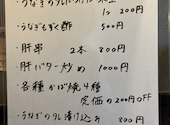 1コ 200円
・うなぎもずく酢 500円
・肝串 2本 800円
・肝バター炒め 1000円
・各種かば焼4種
定価の200円OFF
・うなぎのタレ漬け込み 800円